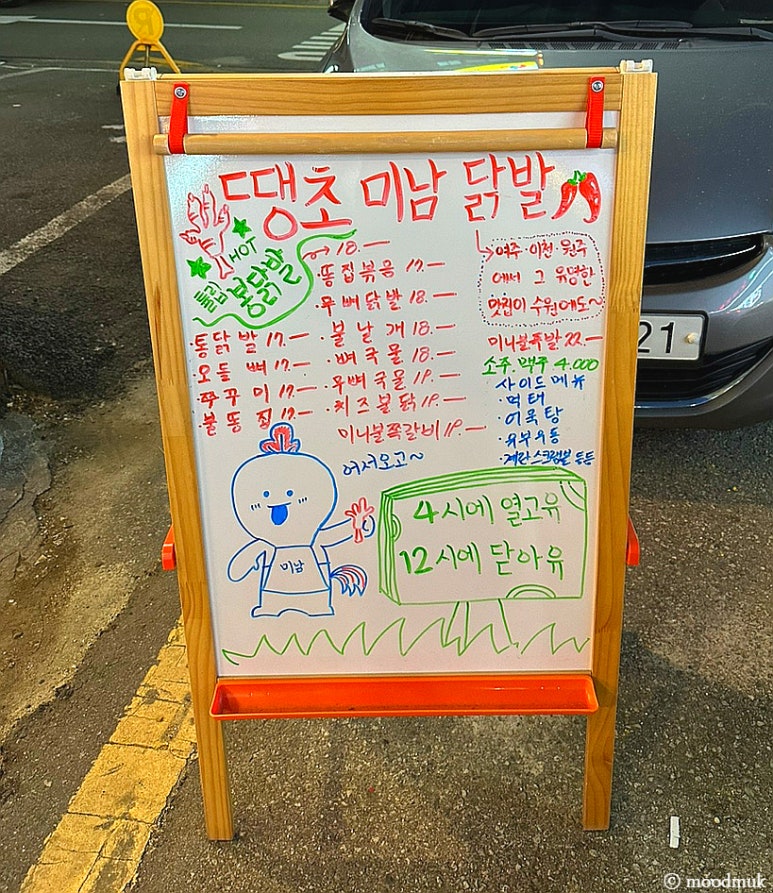 땡초 미남 닭발
HOT
튤립
봉닭발
18.—
·통닭발 17.—
·오돌뼈 17.—
·쭈꾸미 17.—
·불똥집 17.—
·똥집볶음 17.—
·무뼈닭발 18.—
·불날개 18.—
·뼈국물 18.—
·무뼈국물 19.—
·치즈불닭 19.—
미니불쪽갈비 19.—
여주·이천·원주
에서 그 유명한
맛집이 수원에도~
미니불족발 22.—
소주·맥주 4.000
·사이드메뉴
·먹태
·어묵탕
·유부우동
·계란스크램블 등등
어서오고~
미남
4시에 열고유
12시에 닫아유
21
© moodmuk